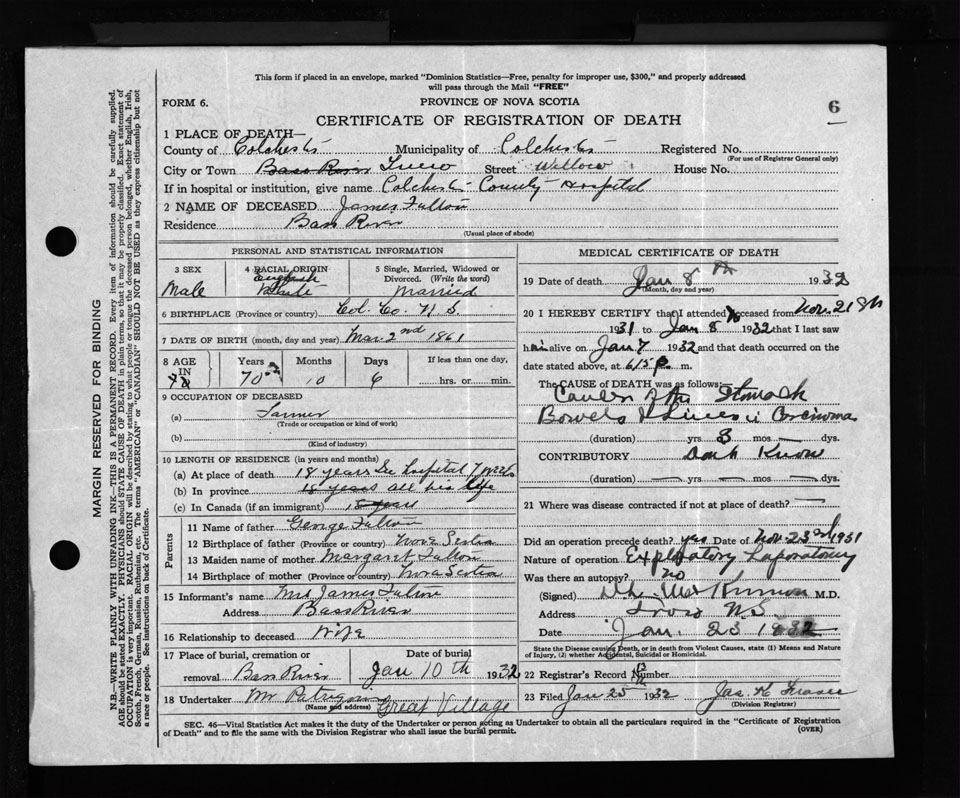 This form if placed in an envelope, marked "Dominion Statistics—Free, penalty for improper use, $300," and properly addressed
will pass through the Mail "FREE"
FORM 6.
PROVINCE OF NOVA SCOTIA
6
CERTIFICATE OF REGISTRATION OF DEATH
1 PLACE OF DEATH—
County of Colchester Municipality of Colchester Registered No.
(For use of Registrar General only)
City or Town Bass River Truro Street Willow House No.
If in hospital or institution, give name Colchester County Hospital
2 NAME OF DECEASED James Fulton
Residence Bass River
(Usual place of abode)
PERSONAL AND STATISTICAL INFORMATION
3 SEX 4 RACIAL ORIGIN 5 Single, Married, Widowed or Divorced. (Write the word)
Male English White Married
6 BIRTHPLACE (Province or country) Col. Co. N S
7 DATE OF BIRTH (month, day and year) Mar 2nd 1861
8 AGE IN Years Months Days If less than one day,
70 10 6 hrs. or min.
9 OCCUPATION OF DECEASED
(a) Farmer
(Trade or occupation or kind of work)
(b)
(Kind of industry)
10 LENGTH OF RESIDENCE (in years and months)
(a) At place of death 18 years In hospital 7 weeks
(b) In province 18 years all his life
(c) In Canada (if an immigrant) 18 years
Parents
11 Name of father George Fulton
12 Birthplace of father (Province or country) Nova Scotia
13 Maiden name of mother Margaret Fulton
14 Birthplace of mother (Province or country) Nova Scotia
15 Informant's name Mrs James Fulton
Address Bass River
16 Relationship to deceased Wife
17 Place of burial, cremation or removal Bass River Date of burial Jan 10th 1932
18 Undertaker Mr Great Village
(Name and address)
MEDICAL CERTIFICATE OF DEATH
19 Date of death Jan 8th 1932
(Month, day and year)
20 I HEREBY CERTIFY that I attended deceased from Nov. 21st
1931 to Jan 8 1932 that I last saw
him alive on Jan 7 1932 and that death occurred on the
date stated above, at 6/15 P m.
The CAUSE OF DEATH was as follows:
Cancer of the Stomach
Bowels & Liver Carcinoma
(duration) yrs 3 mos — dys.
CONTRIBUTORY Dont Know
(duration) yrs mos dys.
21 Where was disease contracted if not at place of death? —
Did an operation precede death? yes Date of Nov. 23rd 1931
Nature of operation Exploratory Laporatomy
Was there an autopsy? no
(Signed) M.D.
Address Truro N.S.
Date Jan. 23 1932
State the Disease causing Death, or in death from Violent Causes, state (1) Means and Nature
of Injury, (2) whether Accidental, Suicidal or Homicidal.
22 Registrar's Record Number
23 Filed Jan 25 1932 Jas. H Fraser
(Division Registrar)
SEC. 46—Vital Statistics Act makes it the duty of the Undertaker or person acting as Undertaker to obtain all the particulars required in the "Certificate of Registration
of Death" and to file the same with the Division Registrar who shall issue the burial permit.
(OVER)
MARGIN RESERVED FOR BINDING
N.B.—WRITE PLAINLY WITH UNFADING INK—THIS IS A PERMANENT RECORD. Every item of information should be carefully supplied.
AGE should be stated EXACTLY. PHYSICIANS should state CAUSE OF DEATH in plain terms, so that it may be properly classified. Exact statement of
OCCUPATION is very important. RACIAL ORIGIN will be described by stating to what people or tongue the deceased person belonged, whether English, Irish,
Scotch, French, German, Russian, Ruthenian, etc. The terms "AMERICAN" or "CANADIAN" SHOULD NOT BE USED as they express citizenship but not
a race or people. See instructions on back of Certificate.